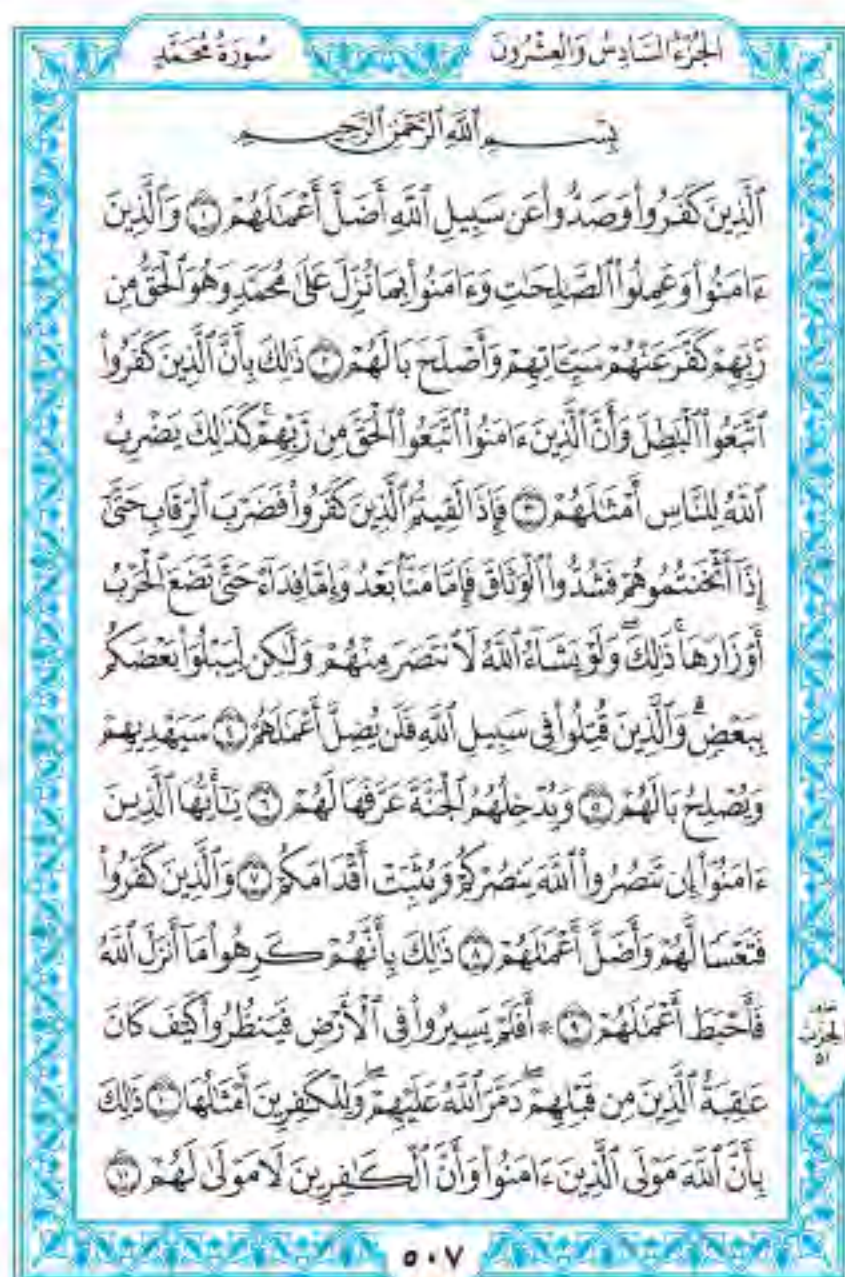 الجُزْءُ السَّادِسُ وَالعِشْرُونَ
سُورَةُ مُحَمَّدٍ
بِسْمِ ٱللَّهِ ٱلرَّحْمَٰنِ ٱلرَّحِيمِ
ٱلَّذِينَ كَفَرُوا۟ وَصَدُّوا۟ عَن سَبِيلِ ٱللَّهِ أَضَلَّ أَعْمَٰلَهُمْ ١ وَٱلَّذِينَ
ءَامَنُوا۟ وَعَمِلُوا۟ ٱلصَّٰلِحَٰتِ وَءَامَنُوا۟ بِمَا نُزِّلَ عَلَىٰ مُحَمَّدٍ وَهُوَ ٱلْحَقُّ مِن
رَّبِّهِمْ كَفَّرَ عَنْهُمْ سَيِّـَٔاتِهِمْ وَأَصْلَحَ بَالَهُمْ ٢ ذَٰلِكَ بِأَنَّ ٱلَّذِينَ كَفَرُوا۟
ٱتَّبَعُوا۟ ٱلْبَٰطِلَ وَأَنَّ ٱلَّذِينَ ءَامَنُوا۟ ٱتَّبَعُوا۟ ٱلْحَقَّ مِن رَّبِّهِمْ ۚ كَذَٰلِكَ يَضْرِبُ
ٱللَّهُ لِلنَّاسِ أَمْثَٰلَهُمْ ٣ فَإِذَا لَقِيتُمُ ٱلَّذِينَ كَفَرُوا۟ فَضَرْبَ ٱلرِّقَابِ حَتَّىٰٓ
إِذَآ أَثْخَنتُمُوهُمْ فَشُدُّوا۟ ٱلْوَثَاقَ فَإِمَّا مَنًّۢا بَعْدُ وَإِمَّا فِدَآءً حَتَّىٰ تَضَعَ ٱلْحَرْبُ
أَوْزَارَهَا ۚ ذَٰلِكَ ۖ وَلَوْ يَشَآءُ ٱللَّهُ لَٱنتَصَرَ مِنْهُمْ وَلَٰكِن لِّيَبْلُوَا۟ بَعْضَكُم
بِبَعْضٍ ۗ وَٱلَّذِينَ قُتِلُوا۟ فِى سَبِيلِ ٱللَّهِ فَلَن يُضِلَّ أَعْمَٰلَهُمْ ٤ سَيَهْدِيهِمْ
وَيُصْلِحُ بَالَهُمْ ٥ وَيُدْخِلُهُمُ ٱلْجَنَّةَ عَرَّفَهَا لَهُمْ ٦ يَٰٓأَيُّهَا ٱلَّذِينَ
ءَامَنُوٓا۟ إِن تَنصُرُوا۟ ٱللَّهَ يَنصُرْكُمْ وَيُثَبِّتْ أَقْدَامَكُمْ ٧ وَٱلَّذِينَ كَفَرُوا۟
فَتَعْسًا لَّهُمْ وَأَضَلَّ أَعْمَٰلَهُمْ ٨ ذَٰلِكَ بِأَنَّهُمْ كَرِهُوا۟ مَآ أَنزَلَ ٱللَّهُ
فَأَحْبَطَ أَعْمَٰلَهُمْ ٩ ۞ أَفَلَمْ يَسِيرُوا۟ فِى ٱلْأَرْضِ فَيَنظُرُوا۟ كَيْفَ كَانَ
عَٰقِبَةُ ٱلَّذِينَ مِن قَبْلِهِمْ ۖ دَمَّرَ ٱللَّهُ عَلَيْهِمْ ۖ وَلِلْكَٰفِرِينَ أَمْثَٰلُهَا ١٠ ذَٰلِكَ
بِأَنَّ ٱللَّهَ مَوْلَى ٱلَّذِينَ ءَامَنُوا۟ وَأَنَّ ٱلْكَٰفِرِينَ لَا مَوْلَىٰ لَهُمْ ١١
الحِزْب
٥١
٥٠٧